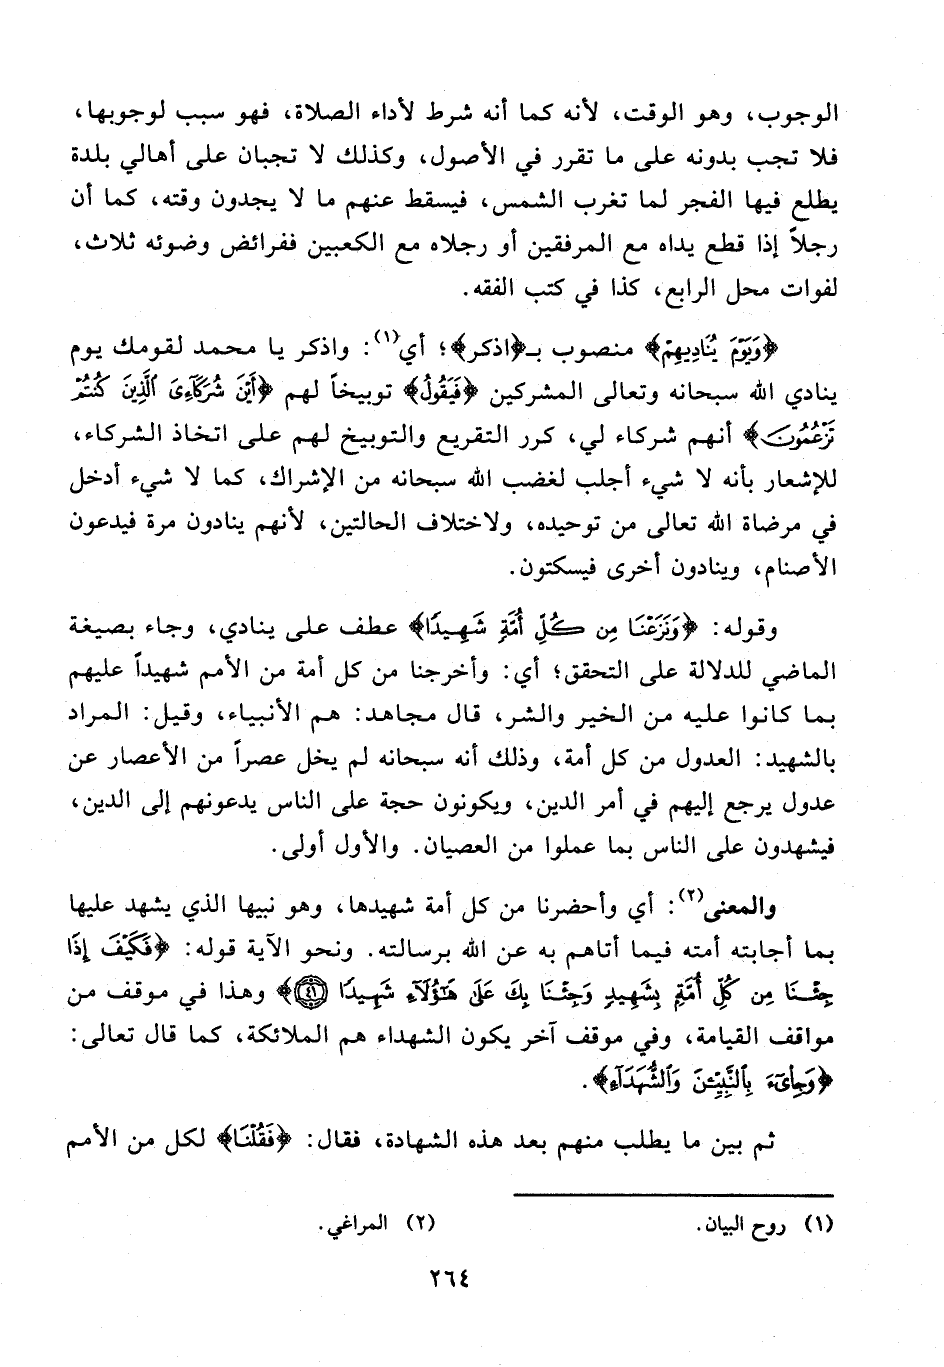 الوجوب، وهو الوقت، لأنه كما أنه شرط لأداء الصلاة، فهو سبب لوجوبها،
فلا تجب بدونه على ما تقرر في الأصول، وكذلك لا تجبان على أهالي بلدة
يطلع فيها الفجر لما تغرب الشمس، فيسقط عنهم ما لا يجدون وقته، كما أن
رجلاً إذا قطع يداه مع المرفقين أو رجلاه مع الكعبين ففرائض وضوئه ثلاث،
لفوات محل الرابع، كذا في كتب الفقه.
﴿وَيَوْمَ يُنَادِيهِمْ﴾ منصوب بـ﴿اذكر﴾؛ أي(١): واذكر يا محمد لقومك يوم
ينادي الله سبحانه وتعالى المشركين ﴿فَيَقُولُ﴾ توبيخاً لهم ﴿أَيْنَ شُرَكَآءِىَ ٱلَّذِينَ كُنتُمْ
تَزْعُمُونَ﴾ أنهم شركاء لي، كرر التقريع والتوبيخ لهم على اتخاذ الشركاء،
للإشعار بأنه لا شيء أجلب لغضب الله سبحانه من الإشراك، كما لا شيء أدخل
في مرضاة الله تعالى من توحيده، ولاختلاف الحالتين، لأنهم ينادون مرة فيدعون
الأصنام، وينادون أخرى فيسكتون.
وقوله: ﴿وَنَزَعْنَا مِن كُلِّ أُمَّةٍ شَهِيدًا﴾ عطف على ينادي، وجاء بصيغة
الماضي للدلالة على التحقق؛ أي: وأخرجنا من كل أمة من الأمم شهيداً عليهم
بما كانوا عليه من الخير والشر، قال مجاهد: هم الأنبياء، وقيل: المراد
بالشهيد: العدول من كل أمة، وذلك أنه سبحانه لم يخل عصراً من الأعصار عن
عدول يرجع إليهم في أمر الدين، ويكونون حجة على الناس يدعونهم إلى الدين،
فيشهدون على الناس بما عملوا من العصيان. والأول أولى.
والمعنى(٢): أي وأحضرنا من كل أمة شهيدها، وهو نبيها الذي يشهد عليها
بما أجابته أمته فيما أتاهم به عن الله برسالته. ونحو الآية قوله: ﴿فَكَيْفَ إِذَا
جِئْنَا مِن كُلِّ أُمَّةٍۭ بِشَهِيدٍ وَجِئْنَا بِكَ عَلَىٰ هَٰٓؤُلَآءِ شَهِيدًا ٤١﴾ وهذا في موقف من
مواقف القيامة، وفي موقف آخر يكون الشهداء هم الملائكة، كما قال تعالى:
﴿وَجِا۟ىٓءَ بِٱلنَّبِيِّۦنَ وَٱلشُّهَدَآءِ﴾.
ثم بين ما يطلب منهم بعد هذه الشهادة، فقال: ﴿فَقُلْنَا﴾ لكل من الأمم
(١) روح البيان. (٢) المراغي.
٢٦٤